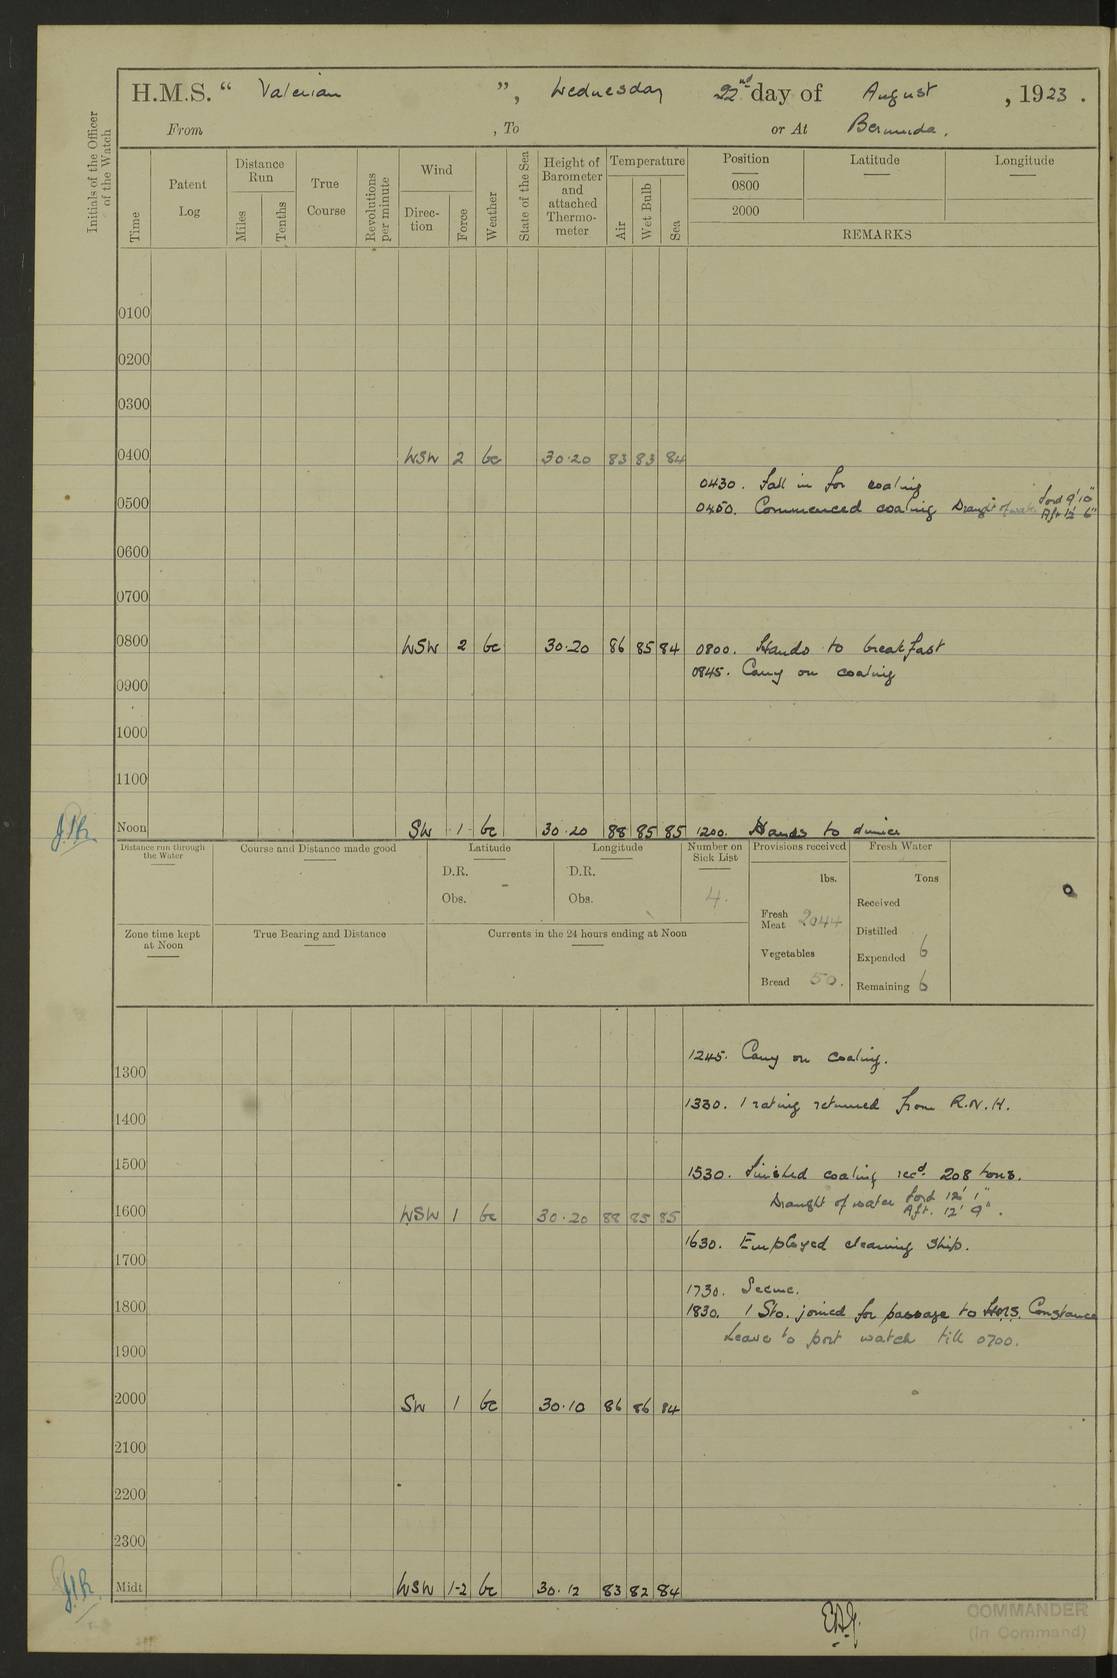 H.M.S. “ Valerian ”, Wednesday 22nd day of August, 1923.
From , To or At Bermuda.
Initials of the Officer of the Watch
Time Patent Log Distance Run Miles Tenths True Course Revolutions per minute Wind Direction Force Weather State of the Sea Height of Barometer and attached Thermometer Temperature Air Wet Bulb Sea Position 0800 2000 Latitude Longitude
REMARKS
0100
0200
0300
0400 WSW 2 bc 30·20 83 83 84
0430. Fall in for coaling
0500 0450. Commenced coaling Draught of water Ford 9' 10" Aft 12' 6"
0600
0700
0800 WSW 2 bc 30·20 86 85 84 0800. Hands to breakfast
0845. Carry on coaling
0900
1000
1100
Noon SW 1 bc 30·20 88 85 85 1200. Hands to dinner
Distance run through the Water Course and Distance made good Latitude Longitude Number on Sick List Provisions received Fresh Water
D.R. D.R. lbs. Tons
Obs. Obs. 4. Received
Fresh Meat 2044
Zone time kept at Noon True Bearing and Distance Currents in the 24 hours ending at Noon Distilled
Vegetables Expended 6
Bread 50. Remaining 6
1245. Carry on coaling.
1300
1330. 1 rating returned from R.N.H.
1400
1500
1530. Finished coaling recd. 208 tons.
Draught of water Ford 12' 1" Aft. 12' 9".
1600 WSW 1 bc 30·20 88 85 85
1630. Employed cleaning ship.
1700
1730. Secure.
1800 1830. 1 Sto. joined for passage to H.M.S. Constance
Leave to port watch till 0700.
1900
2000 SW 1 bc 30·10 86 86 84
2100
2200
2300
Midt WSW 1-2 bc 30·12 83 82 84
COMMANDER
(in Command)